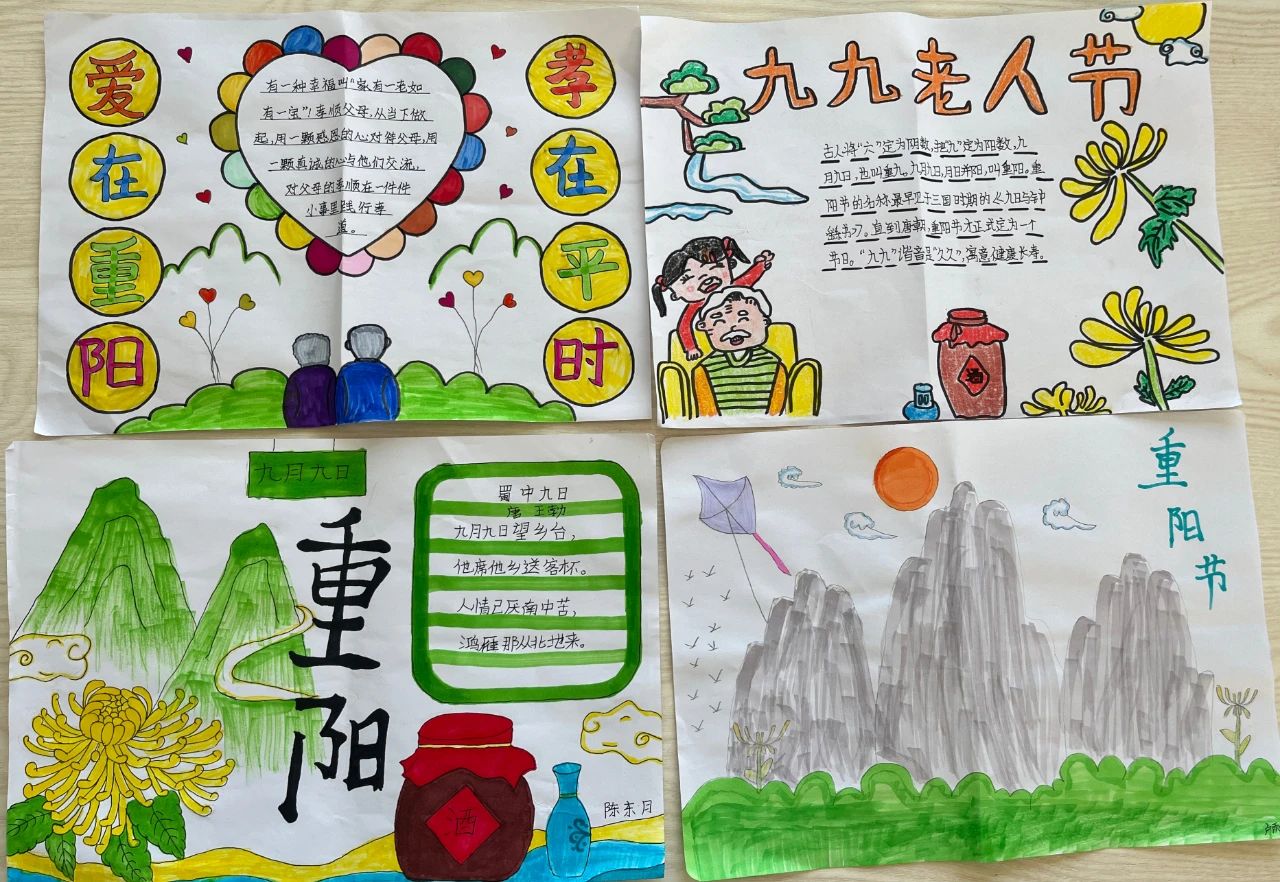 爱在重阳
孝在平时
有一种幸福叫"家有一老如
有一宝"!孝顺父母,从当下做
起,用一颗感恩的心对待父母,用
一颗真诚的心与他们交流,
对父母的孝顺在一件件
小事里践行孝
道。
九九老人节
古人将"六"定为阴数,把"九"定为阳数,九
月九日,也叫重九。九月九日,日月并阳,叫重阳。重
阳节的名称最早见于三国时期的《九日与钟
繇书》。直到唐朝,重阳节才正式定为一个
节日。"九九"谐音是"久久",寓意健康长寿。
酒
九月九日
重阳
蜀中九日
唐 王勃
九月九日望乡台,
他席他乡送客杯。
人情已厌南中苦,
鸿雁那从北地来。
酒
陈东月
重阳节